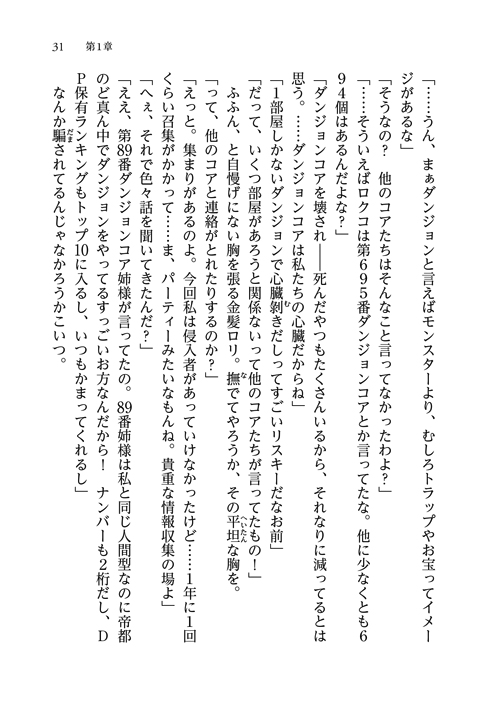 31　第1章
「……うん、まぁダンジョンと言えばモンスターより、むしろトラップやお宝ってイメー
ジがあるな」
「そうなの？　他のコアたちはそんなこと言ってなかったわよ？」
「……そういえばロクコは第６９５番ダンジョンコアとか言ってたな。他に少なくとも６
９４個はあるんだよな？」
「ダンジョンコアを壊され――死んだやつもたくさんいるから、それなりに減ってるとは
思う。……ダンジョンコアは私たちの心臓だからね」
「１部屋しかないダンジョンで心臓剝きだしってすごいリスキーだなお前」
「だって、いくつ部屋があろうと関係ないって他のコアたちが言ってたもの！」
　ふふん、と自慢げにない胸を張る金髪ロリ。撫でてやろうか、その平坦な胸を。
「って、他のコアと連絡がとれたりするのか？」
「えっと。集まりがあるのよ。今回私は侵入者があっていけなかったけど……１年に１回
くらい召集がかかって……ま、パーティーみたいなもんね。貴重な情報収集の場よ」
「へぇ、それで色々話を聞いてきたんだ？」
「ええ、第89番ダンジョンコア姉様が言ってたの。89番姉様は私と同じ人間型なのに帝都
のど真ん中でダンジョンをやってるすっごいお方なんだから！　ナンバーも２桁だし、Ｄ
Ｐ保有ランキングもトップ10に入るし、いつもかまってくれるし」
　なんか騙されてるんじゃなかろうかこいつ。